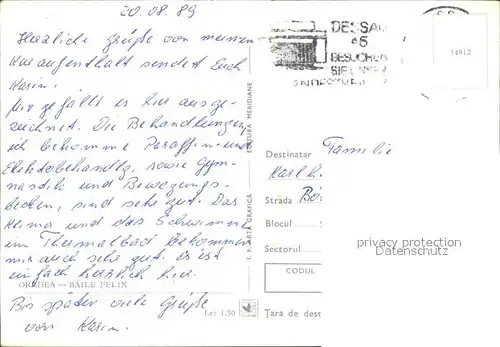 20.08.89
Herzliche Grüße von meinem
Kuraufenthalt sendet Euch
Karin.
Mir gefällt es hier ausge-
zeichnet. Die Behandlungen,
ich bekomme Paraffin- und
Elektrobehandlg, sowie Gym-
nastik und Bewegungs-
becken, sind sehr gut. Das
Klima und das Schwimmen
im Thermalbad bekommen
mir auch sehr gut. Es ist
einfach herrlich hier.
ORADEA — BĂILE FELIX
Bis später viele Grüße
von Karin.
Lei 1,50
I. P. ARTA GRAFICĂ
EDITURA MERIDIANE
DESSAU
BESUCHEN
SIE UNSER
14912
Destinatar
Familie
Strada
Blocul
Sectorul
CODUL
Țara de dest
privacy protection
watermark